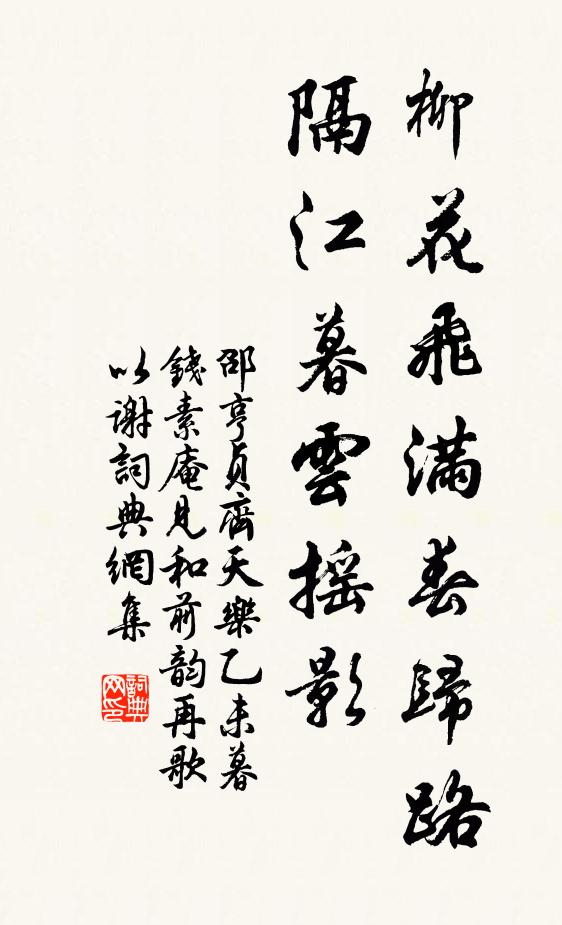 柳花飛滿春歸路
隔江暮雲搖影
邵亨貞齊天樂乙未暮
錢素庵見和前韵再歌
以謝詞典網集
詞典
网印